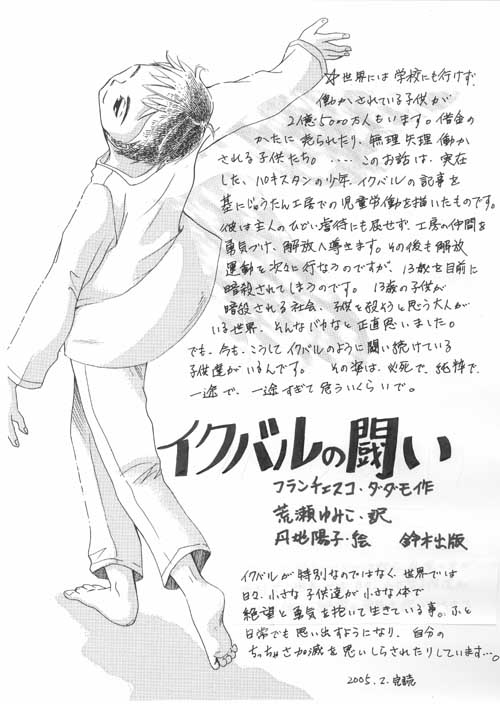 ☆世界には学校にも行けず、
働かされている子供が
2億5000万人もいます。借金の
かたに売られたり、無理矢理働か
される子供たち。‥‥このお話は、実在
した、パキスタンの少年イクバルの記事を
基にじゅうたん工房での児童労働を描いたものです。
彼は主人のひどい虐待にも屈せず、工房の仲間を
勇気づけ、解放へ導きます。その後も解放
運動を次々と行なうのですが、13歳を目前に
暗殺されてしまうのです。13歳の子供が
暗殺される社会、子供を殺そうと思う大人が
いる世界、そんなバカなと正直思いました。
でも、今も、こうしてイクバルのように闘い続けている
子供達がいるんです。その姿は、必死で、純粋で、
一途で、一途すぎて危ういくらいで。
イクバルの闘い
フランチェスコ・ダダモ作
荒瀬ゆみこ・訳
丹地陽子・絵 鈴木出版
イクバルが特別なのではなく、世界では
日々、小さな子供達が小さな体で
絶望と勇気を抱いて生きている事。ふと
日常でも思い出すようになり、自分の
ちっちゃさ加減を思いしらされたりしています…。
2005.2.完読